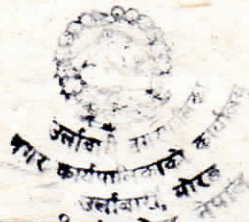 उर्लाबारी नगरपालिका
नगर कार्यपालिकाको कार्यालय
उर्लाबारी, मोरङ
नेपाल